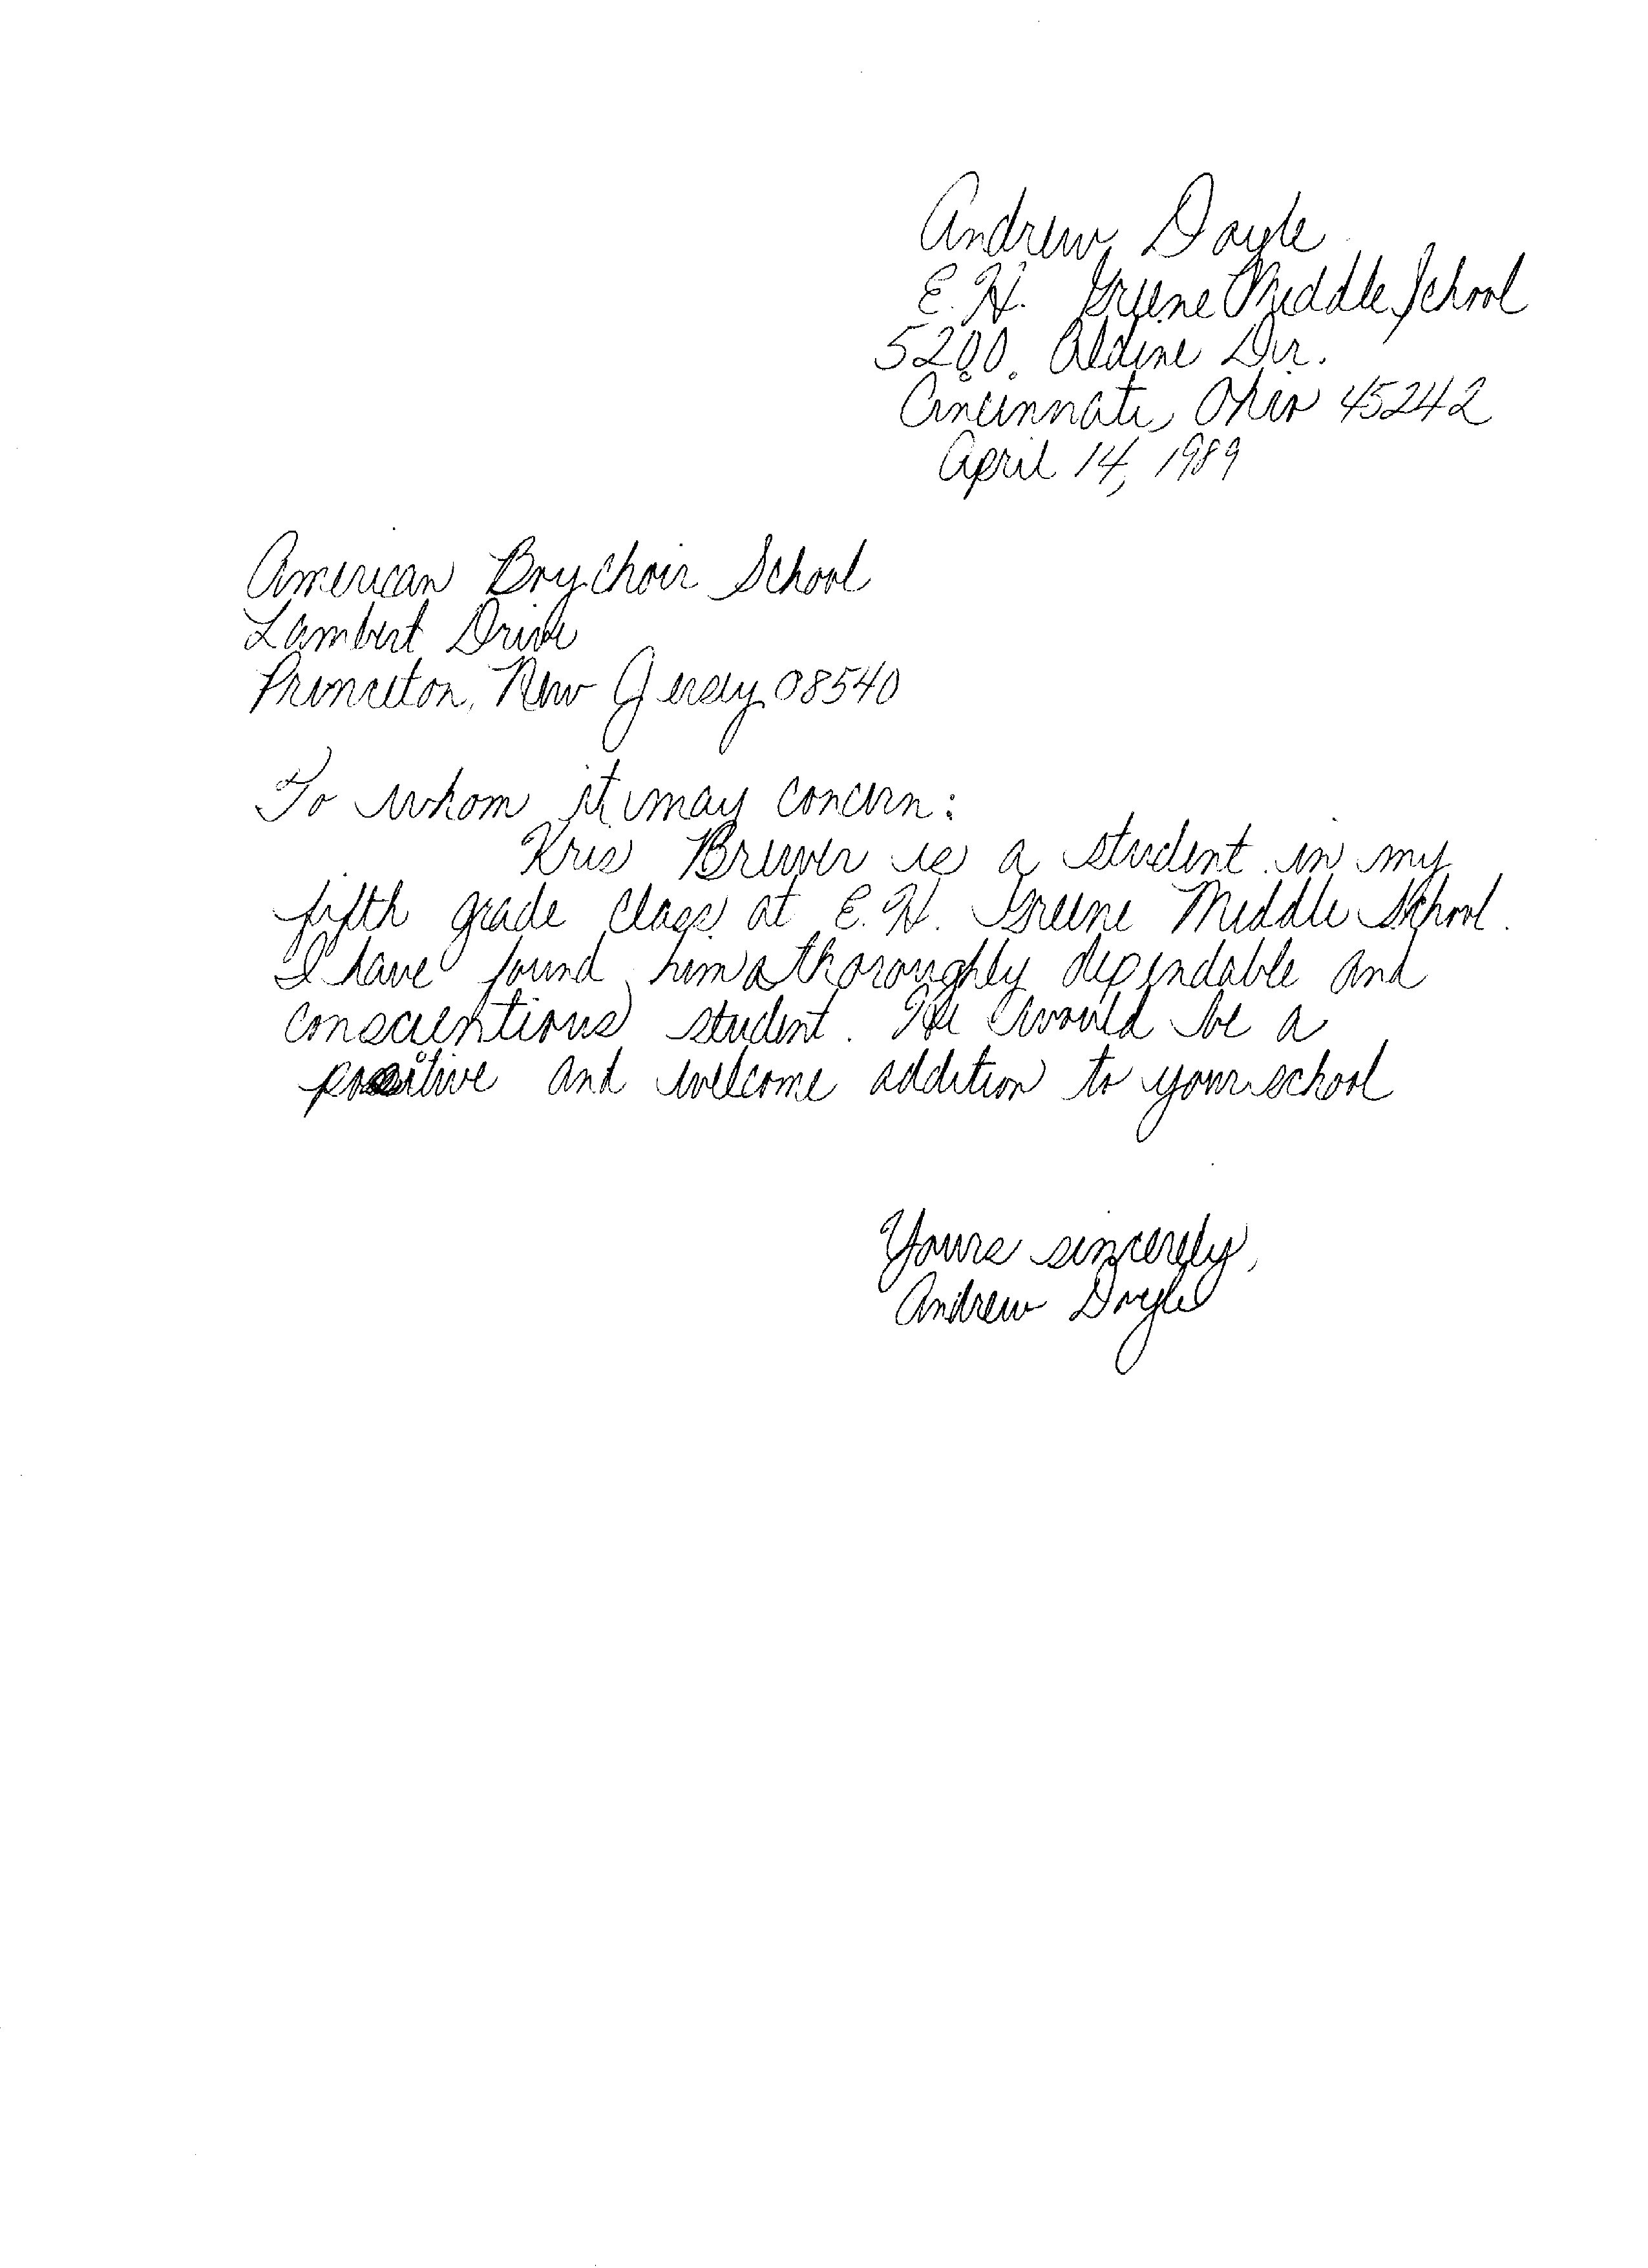 Andrew Doyle
E. H. Greene Middle School
5200 Aldine Dr.
Cincinnati, Ohio 45242
April 14, 1989
American Boychoir School
Lambert Drive
Princeton, New Jersey 08540
To whom it may concern:
Kris Brewer is a student in my
fifth grade class at E. H. Greene Middle School.
I have found him a thoroughly dependable and
conscientious student. He would be a
positive and welcome addition to your school
Yours sincerely,
Andrew Doyle